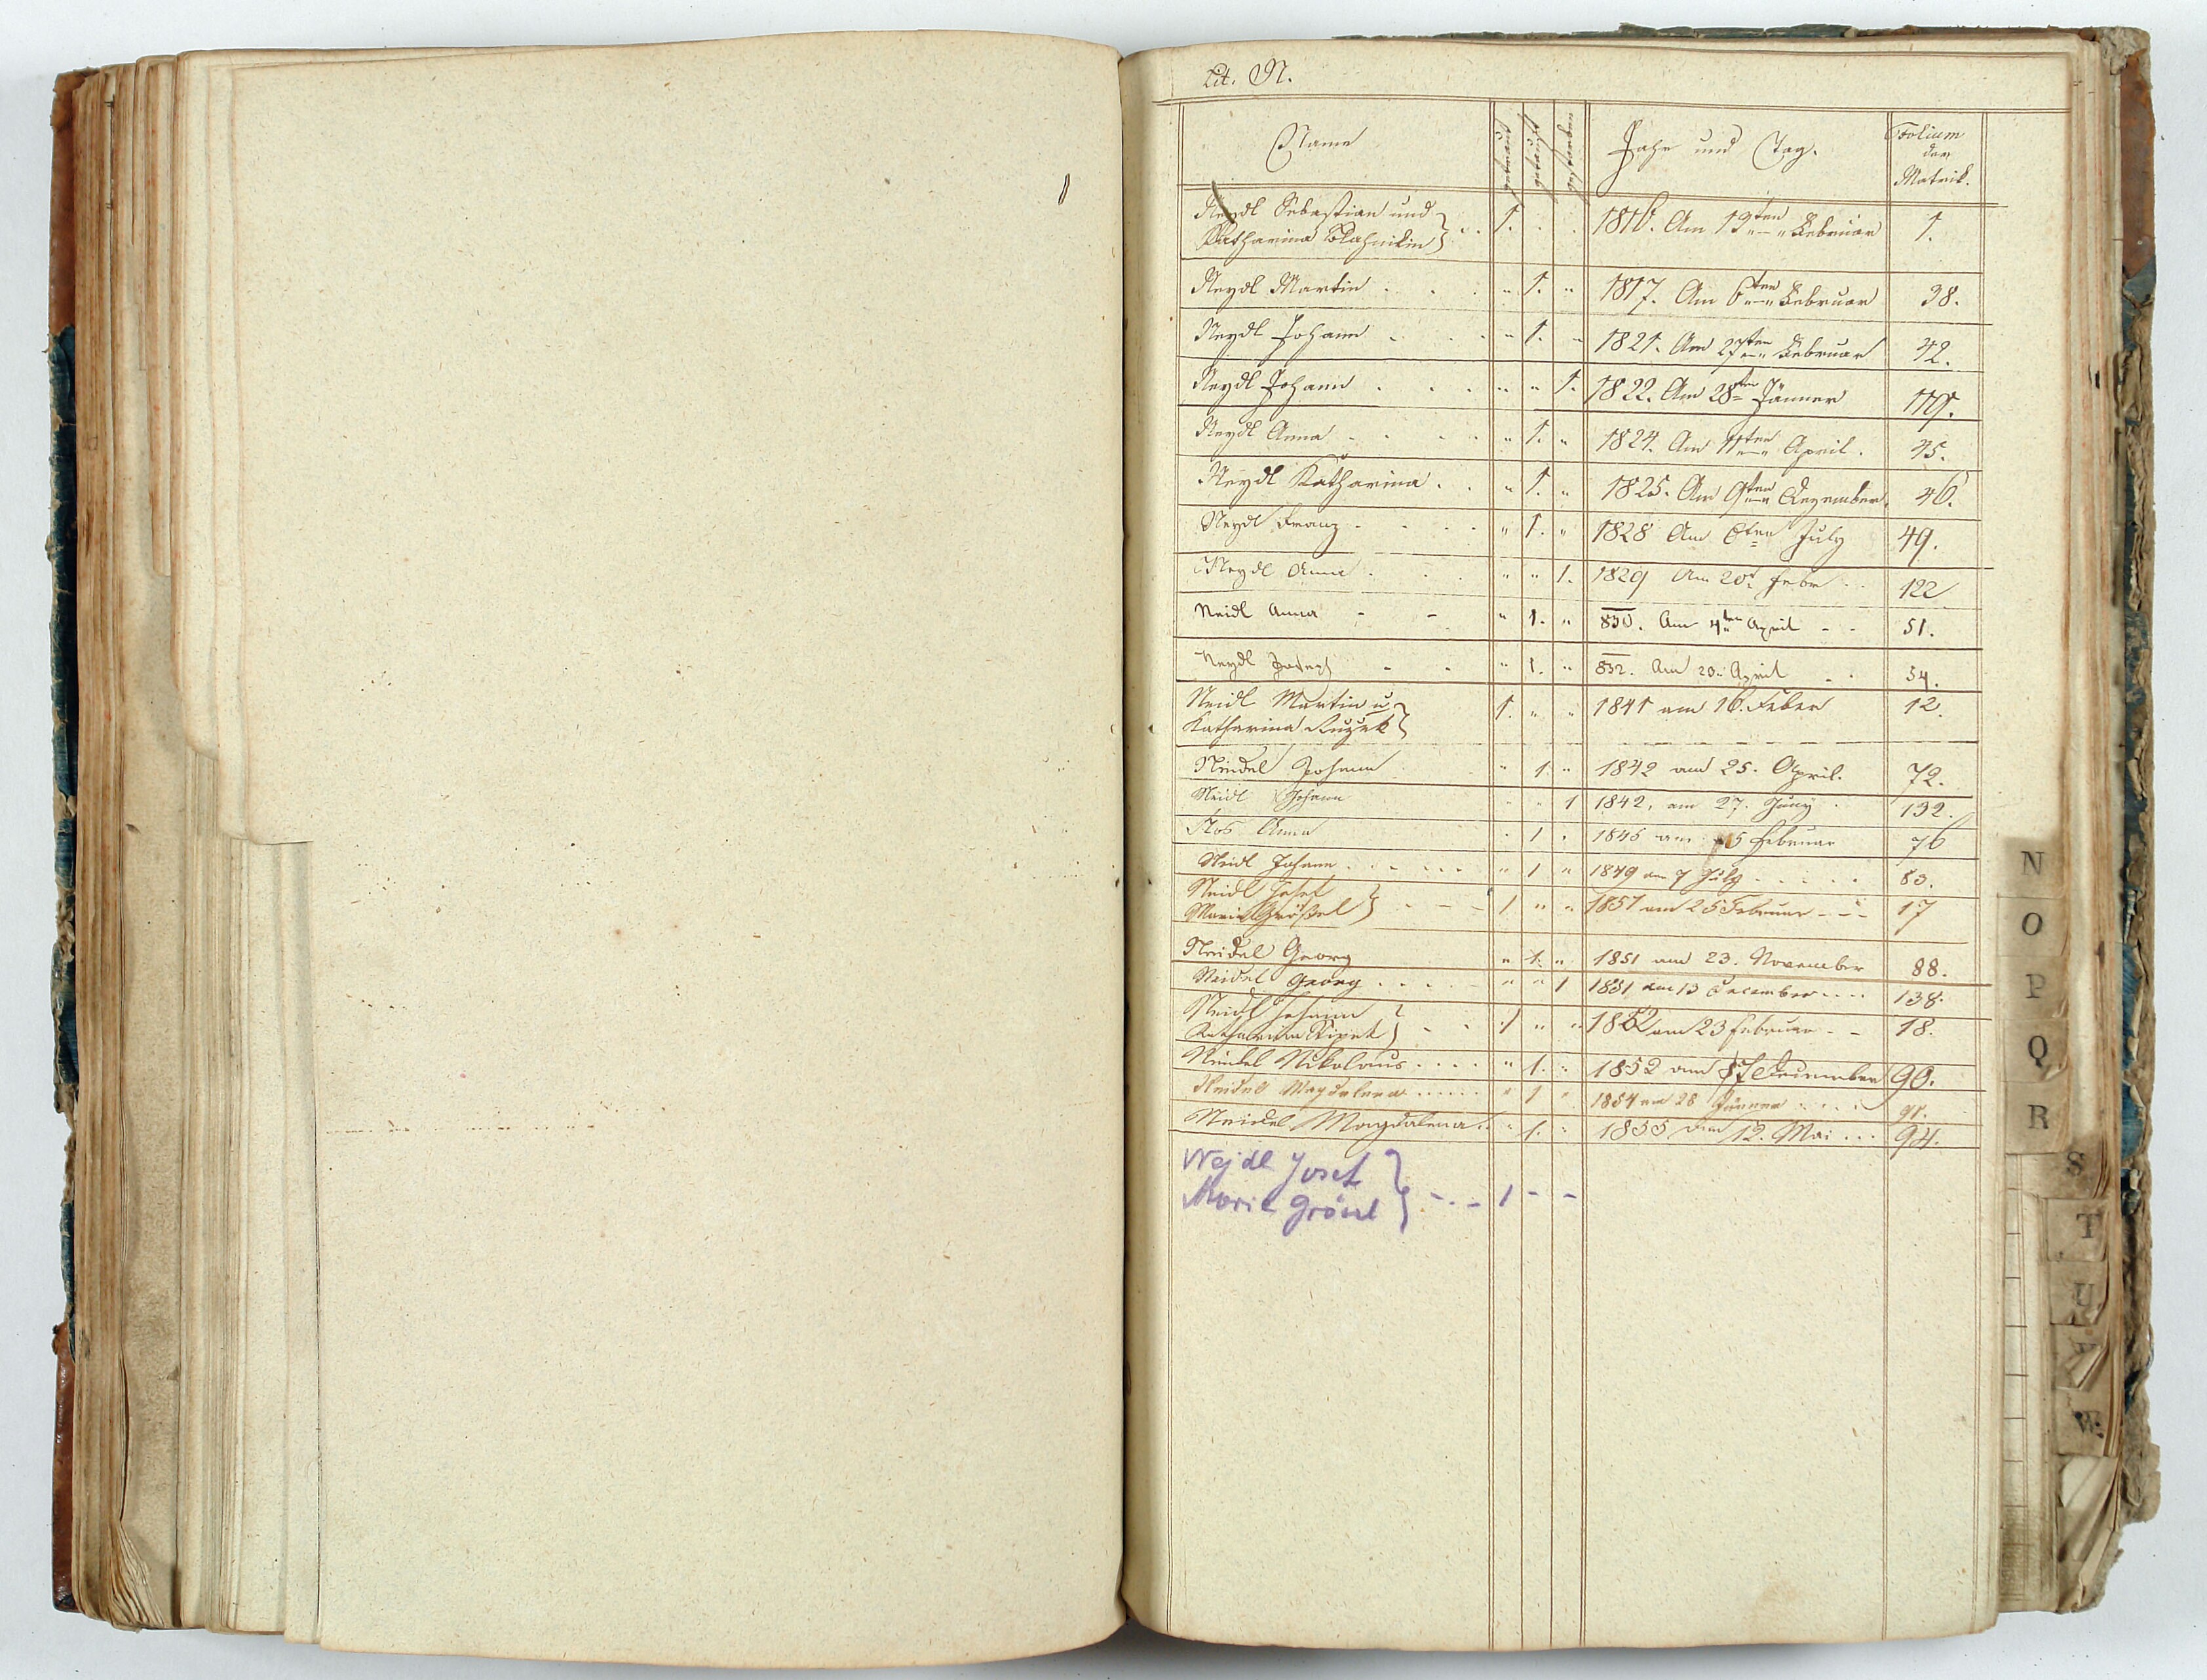 Lit. N.
Name getraut getauft gestorben Jahr und Tag. Folium der Matrik.
Neydl Sebastian und
Katharina 1. 1816. Am 13ten Februar 1.
Neydl Martin . . . " 1. " 1817. Am 6ten Februar 38.
Neydl Johann . . . " 1. " 1821. Am 27ten Februar 42.
Neydl Johann . . . " " 1. 1822. Am 28ten Jänner 119.
Neydl Anna . . . " 1. " 1824. Am 11ten April. 45.
Neydl Katharina . . " 1. " 1825. Am 9ten Dezember. 46.
Neydl Franz . . . " 1. " 1828 Am 6ten July 49.
Neydl Anna . . . " " 1. 1829 Am 20t Febr . . 122
Neidl Anna - - " 1. " 830. Am 4ten April - - 51.
Neydl Joseph - - " 1. " 832. Am 20. April - - 54.
Neidl Martin u
Katharina Ruzek 1. " " 1841 am 16. Feber 12.
Neidel Johann " 1 " 1842 am 25. April. 72.
Neidl Johann " " 1 1842, am 27. Juny . 132.
Nos Anna . 1 . 1845 am 5 Februar 76
Neidl Johann . . . . . . " 1 " 1849 am 7 July . . . . . 83.
Neidl Josef
Maria Größel - - - 1 " " 1851 am 25 Februar - - - 17
Neidel Georg " 1. " 1851 am 23. November 88.
Neidel Georg . . . . " " 1 1851 am 13 December . . . . 138.
Neidl Johann
Katharina - . . 1 " " 1852 am 23 Februar - - 18.
Neidel Nikolaus . . . . " 1. " 1852 am 7 December 90.
Neidel Magdalena . . . . . " 1 " 1854 am 28 Jänner . . . . 91.
Neidel Magdalena . . " 1. " 1855 am 12. Mai . . . 94.
Nejdl Josef
Marie Grössl - . . - 1 - -
N
O
P
Q
R
S
T
U
V
W.